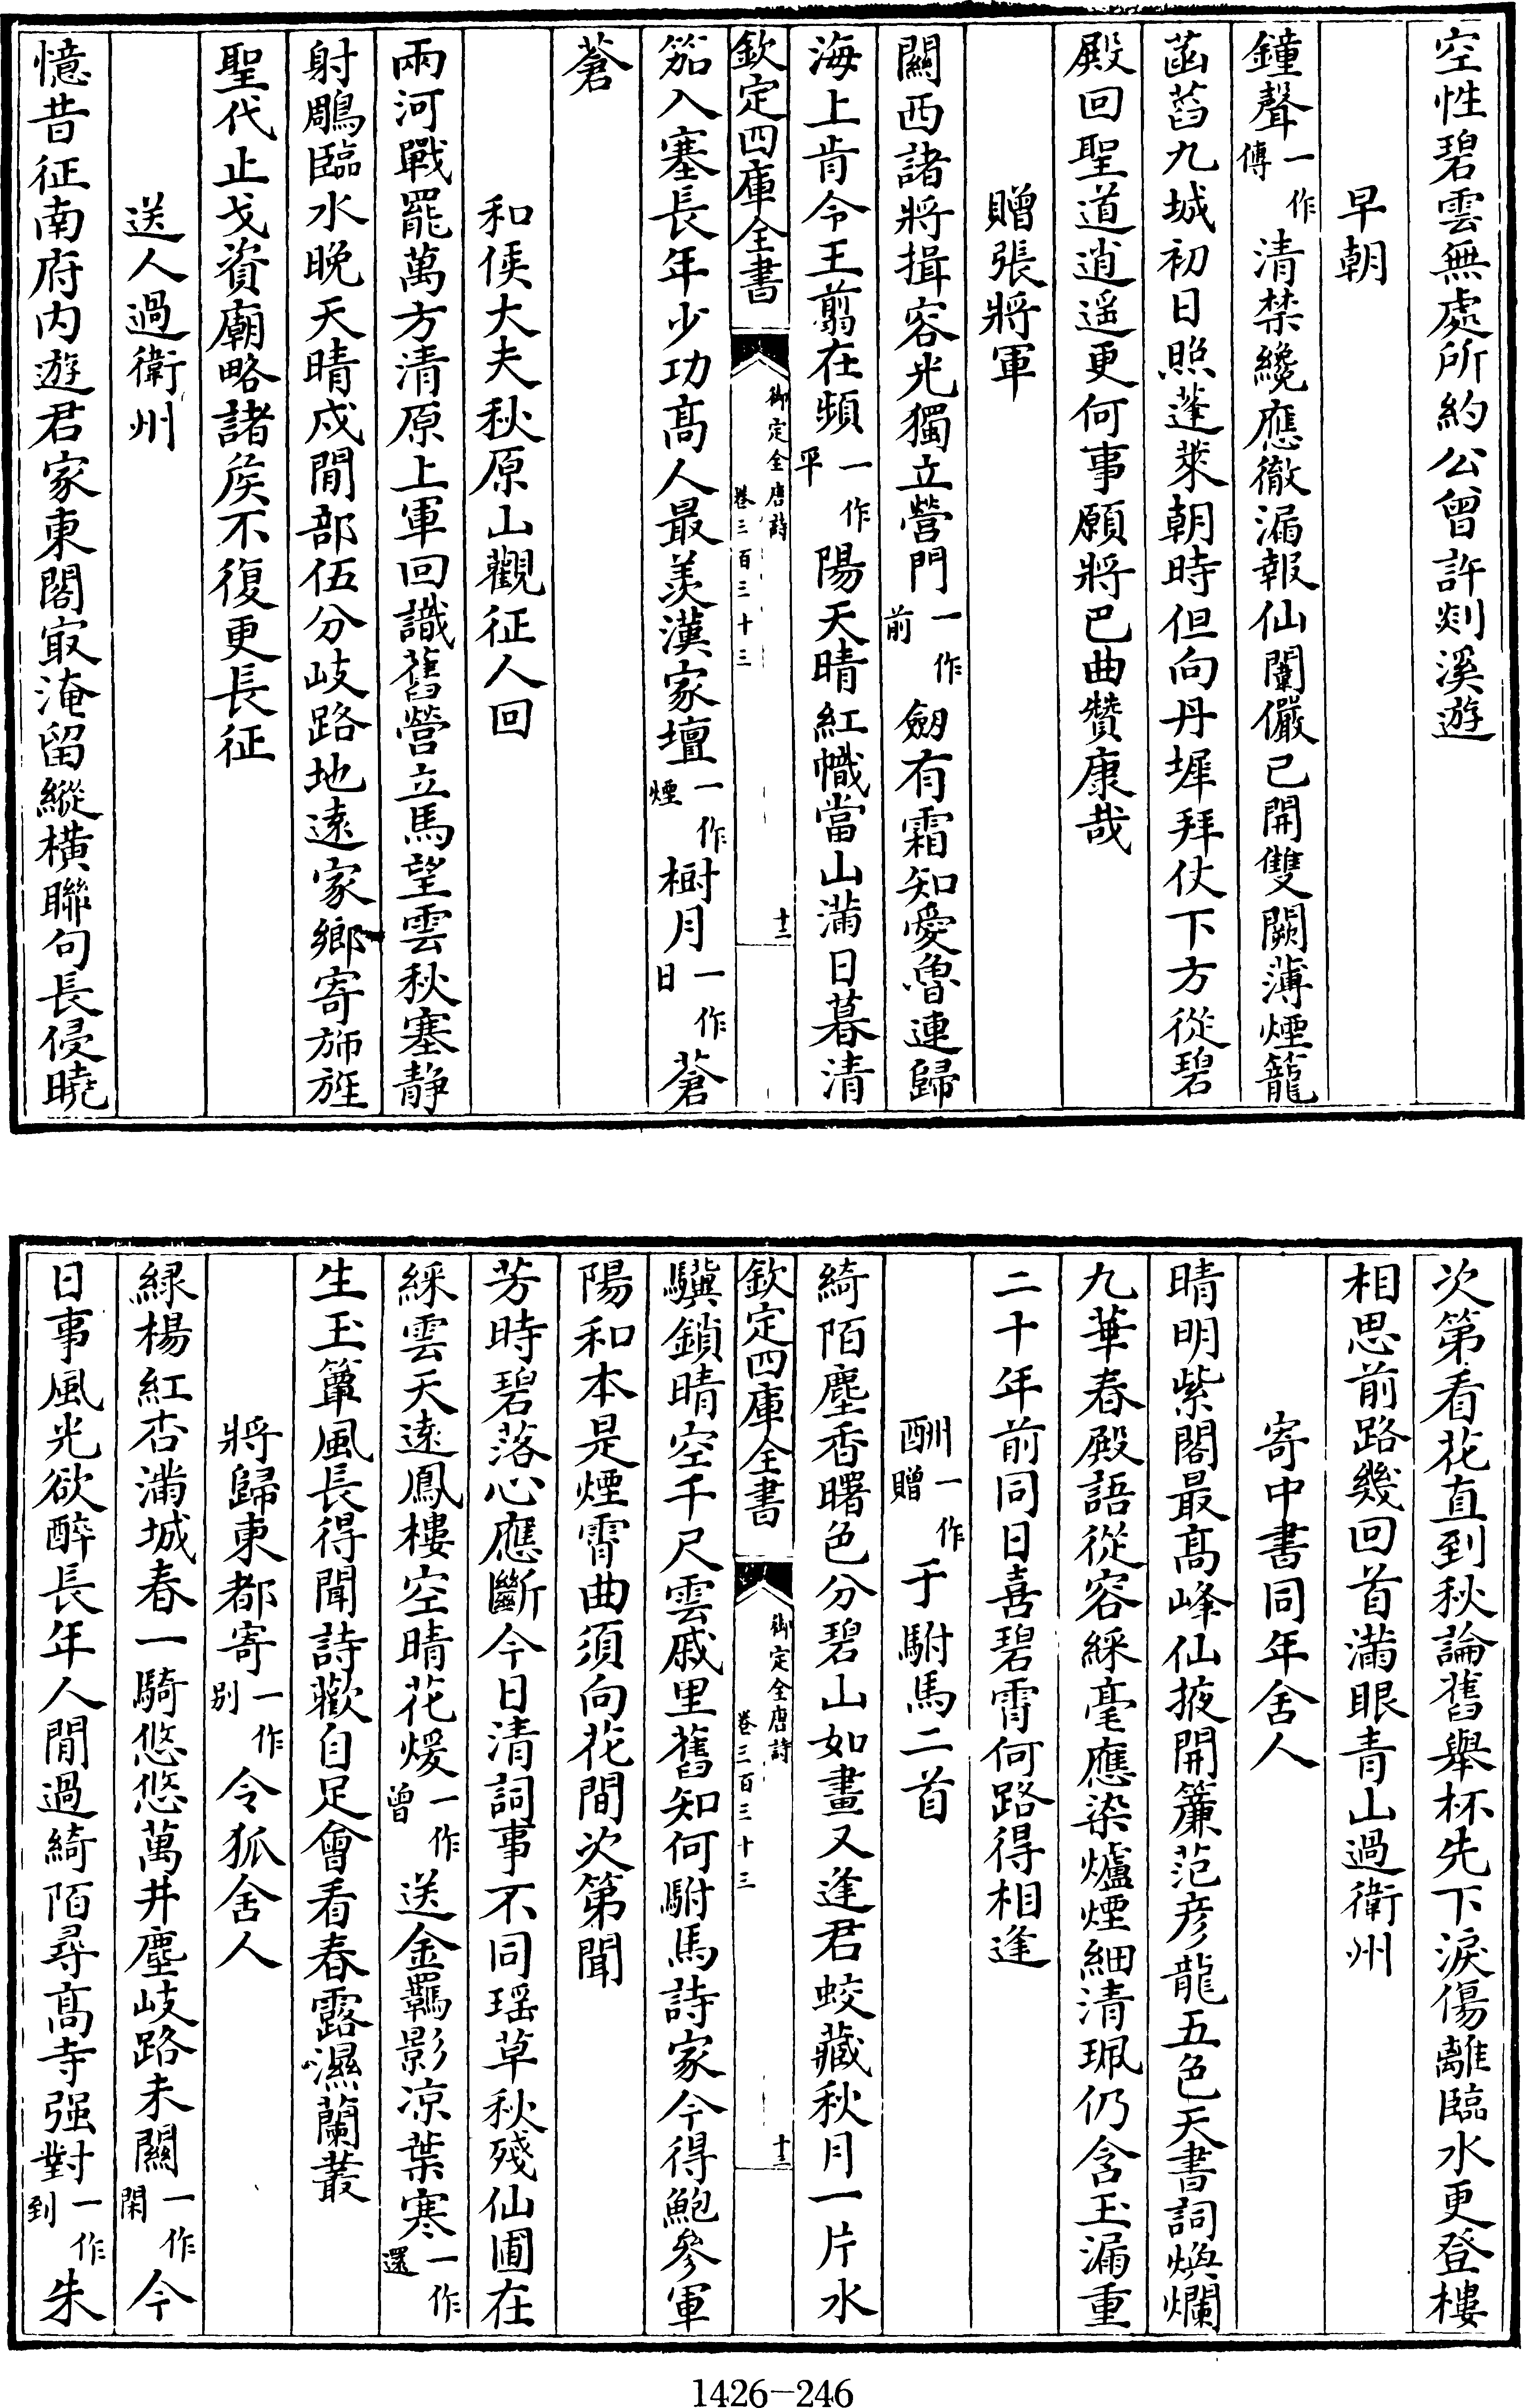 空性碧雲無處所約公曾許剡溪遊
早朝
鐘聲一作傳清禁纔應徹漏報仙闈儼已開雙闕薄煙籠
菡萏九城初日照蓬萊朝時但向丹墀拜仗下方從碧
殿回聖道逍遥更何事願將巴曲贊康哉
贈張將軍
關西諸將揖容光獨立營門一作前劒有霜知愛魯連歸
海上肯令王翦在頻一作平陽天晴紅幟當山滿日暮清
欽定四庫全書 御定全唐詩 卷三百三十三 十二
笳入塞長年少功髙人最羡漢家壇一作煙樹月一作日蒼
蒼
和侯大夫秋原山觀征人回
兩河戰罷萬方清原上軍回識舊營立馬望雲秋塞静
射鵰臨水晚天晴戍閒部伍分岐路地逺家鄉寄斾旌
聖代止戈資廟略諸侯不復更長征
送人過衛州
憶昔征南府内遊君家東閣㝡淹留縱横聯句長侵曉
次第看花直到秋論舊舉杯先下淚傷離臨水更登樓
相思前路幾回首滿眼青山過衛州
寄中書同年舍人
晴明紫閣最髙峰仙掖開簾范彦龍五色天書詞煥爛
九華春殿語從容綵毫應染爐煙細清珮仍含玉漏重
二十年前同日喜碧霄何路得相逢
酬一作贈于駙馬二首
綺陌塵香曙色分碧山如畫又逢君蛟藏秋月一片水
欽定四庫全書 御定全唐詩 卷三百三十三 十三
驥鎖晴空千尺雲戚里舊知何駙馬詩家今得鮑參軍
陽和本是煙霄曲須向花間次第聞
芳時碧落心應斷今日清詞事不同瑶草秋殘仙圃在
綵雲天逺鳳樓空晴花煖一作曾送金羈影凉葉寒一作還
生玉簟風長得聞詩歡自足會看春露濕蘭叢
將歸東都寄一作别令狐舍人
緑楊紅杏滿城春一騎悠悠萬井塵岐路未關一作閑今
日事風光欲醉長年人閒過綺陌尋髙寺强對一作到朱
1426-246